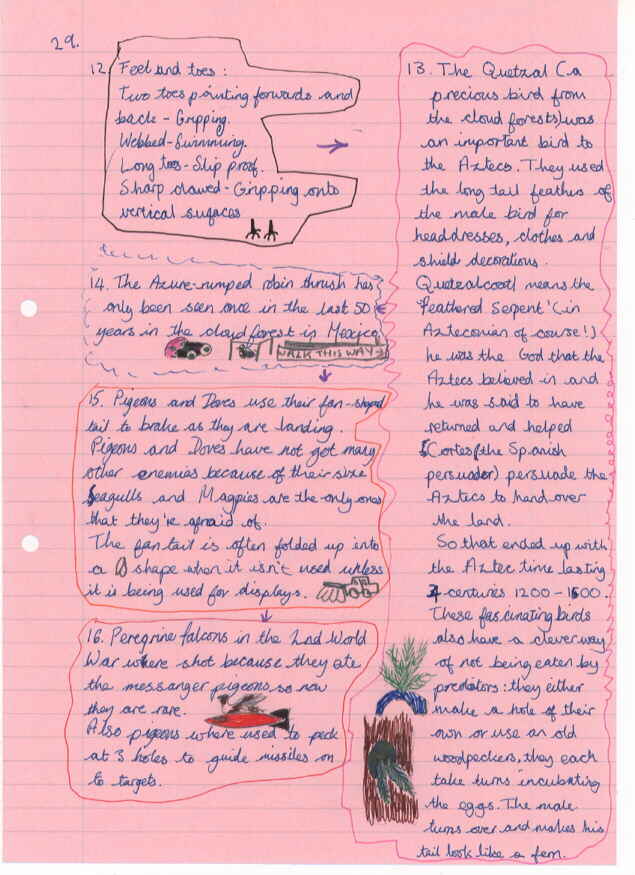 29.
12. Feet and toes:
Two toes pointing forwards and
back - Gripping.
Webbed - Swimming.
Long toes - Slip proof.
Sharp clawed - Gripping onto
vertical sufaces
13. The Quetzal (a
precious bird from
the cloud forests) was
an important bird to
the Aztecs. They used
the long tail feathers of
the male bird for
headdresses, clothes and
shield decorations.
Quetzalcoatl means the
'feathered Serpent' (in
Azteconian of course!)
he was the God that the
Aztecs believed in and
he was said to have
returned and helped
Cortes (the Spanish
persuader) persuade the
Aztecs to hand over
the land.
So that ended up with
the Aztec time lasting
4 centuries 1200 - 1600.
These fascinating birds
also have a clever way
of not being eaten by
predators: they either
make a hole of their
own or use an old
woodpeckers, they each
take turns incubating
the eggs. The male
turns over and makes his
tail look like a fern.
14. The Azure-rumped robin thrush has
only been seen once in the last 50
years in the cloud forest in Mexico
WALK THIS WAY
15. Pigeons and Doves use their fan-shaped
tail to brake as they are landing.
Pigeons and Doves have not got many
other enemies because of their size
Seagulls and Magpies are the only ones
that they're afraid of.
The fan tail is often folded up into
a shape when it isn't used unless
it is being used for displays.
16. Peregrine falcons in the 2nd World
War where shot because they ate
the messanger pigeons so now
they are rare.
Also pigeons where used to peck
at 3 holes to guide missiles on
to targets.